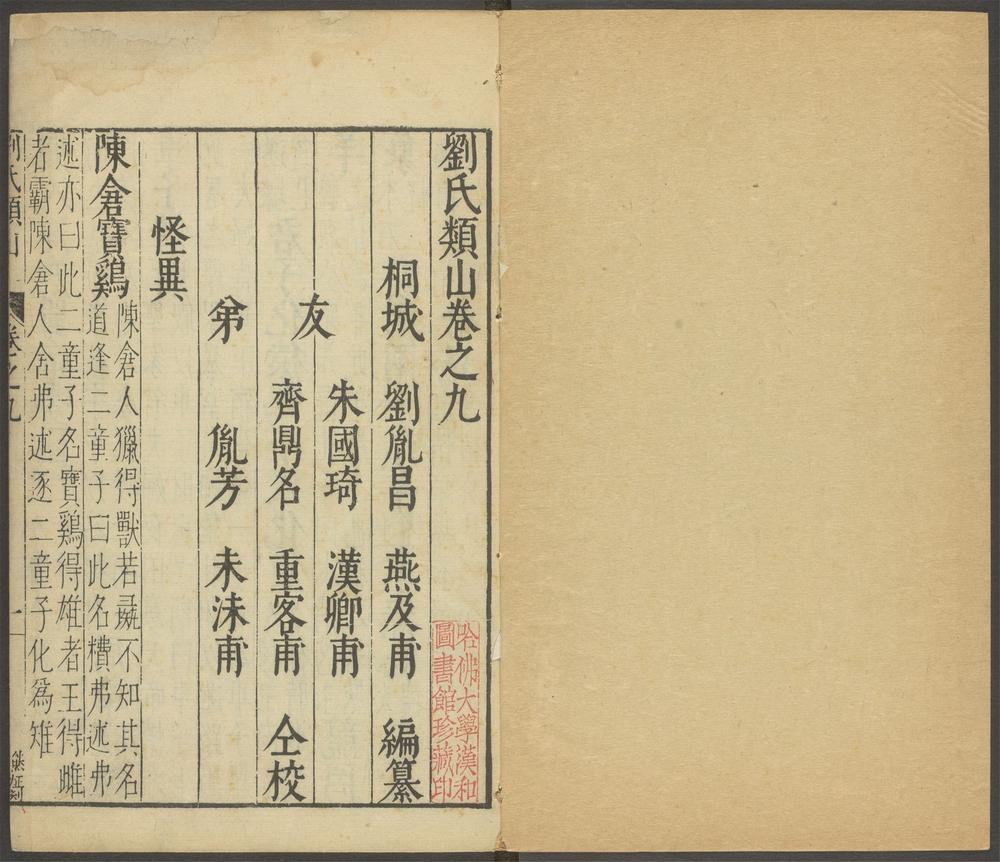 劉氏類山卷之九
哈佛大學漢和
圖書館珍藏印
桐城 劉胤昌 燕及甫 編纂
友 朱國琦 漢卿甫
齊鼎名 重客甫 仝校
弟 胤芳 未沬甫
怪異
陳倉寶鷄
陳倉人獵得獸若彘不知其名
道逢二童子曰此名𥻵弗述弗
述亦曰此二童子名寶鷄得雄者王得雌
者霸陳倉人舍弗述逐二童子化為雉
劉氏類山 卷之九 一